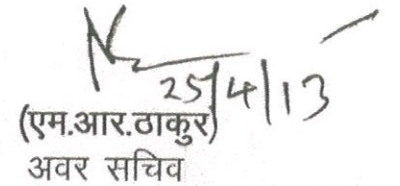 25/4/13
(एम.आर.ठाकुर)
अवर सचिव